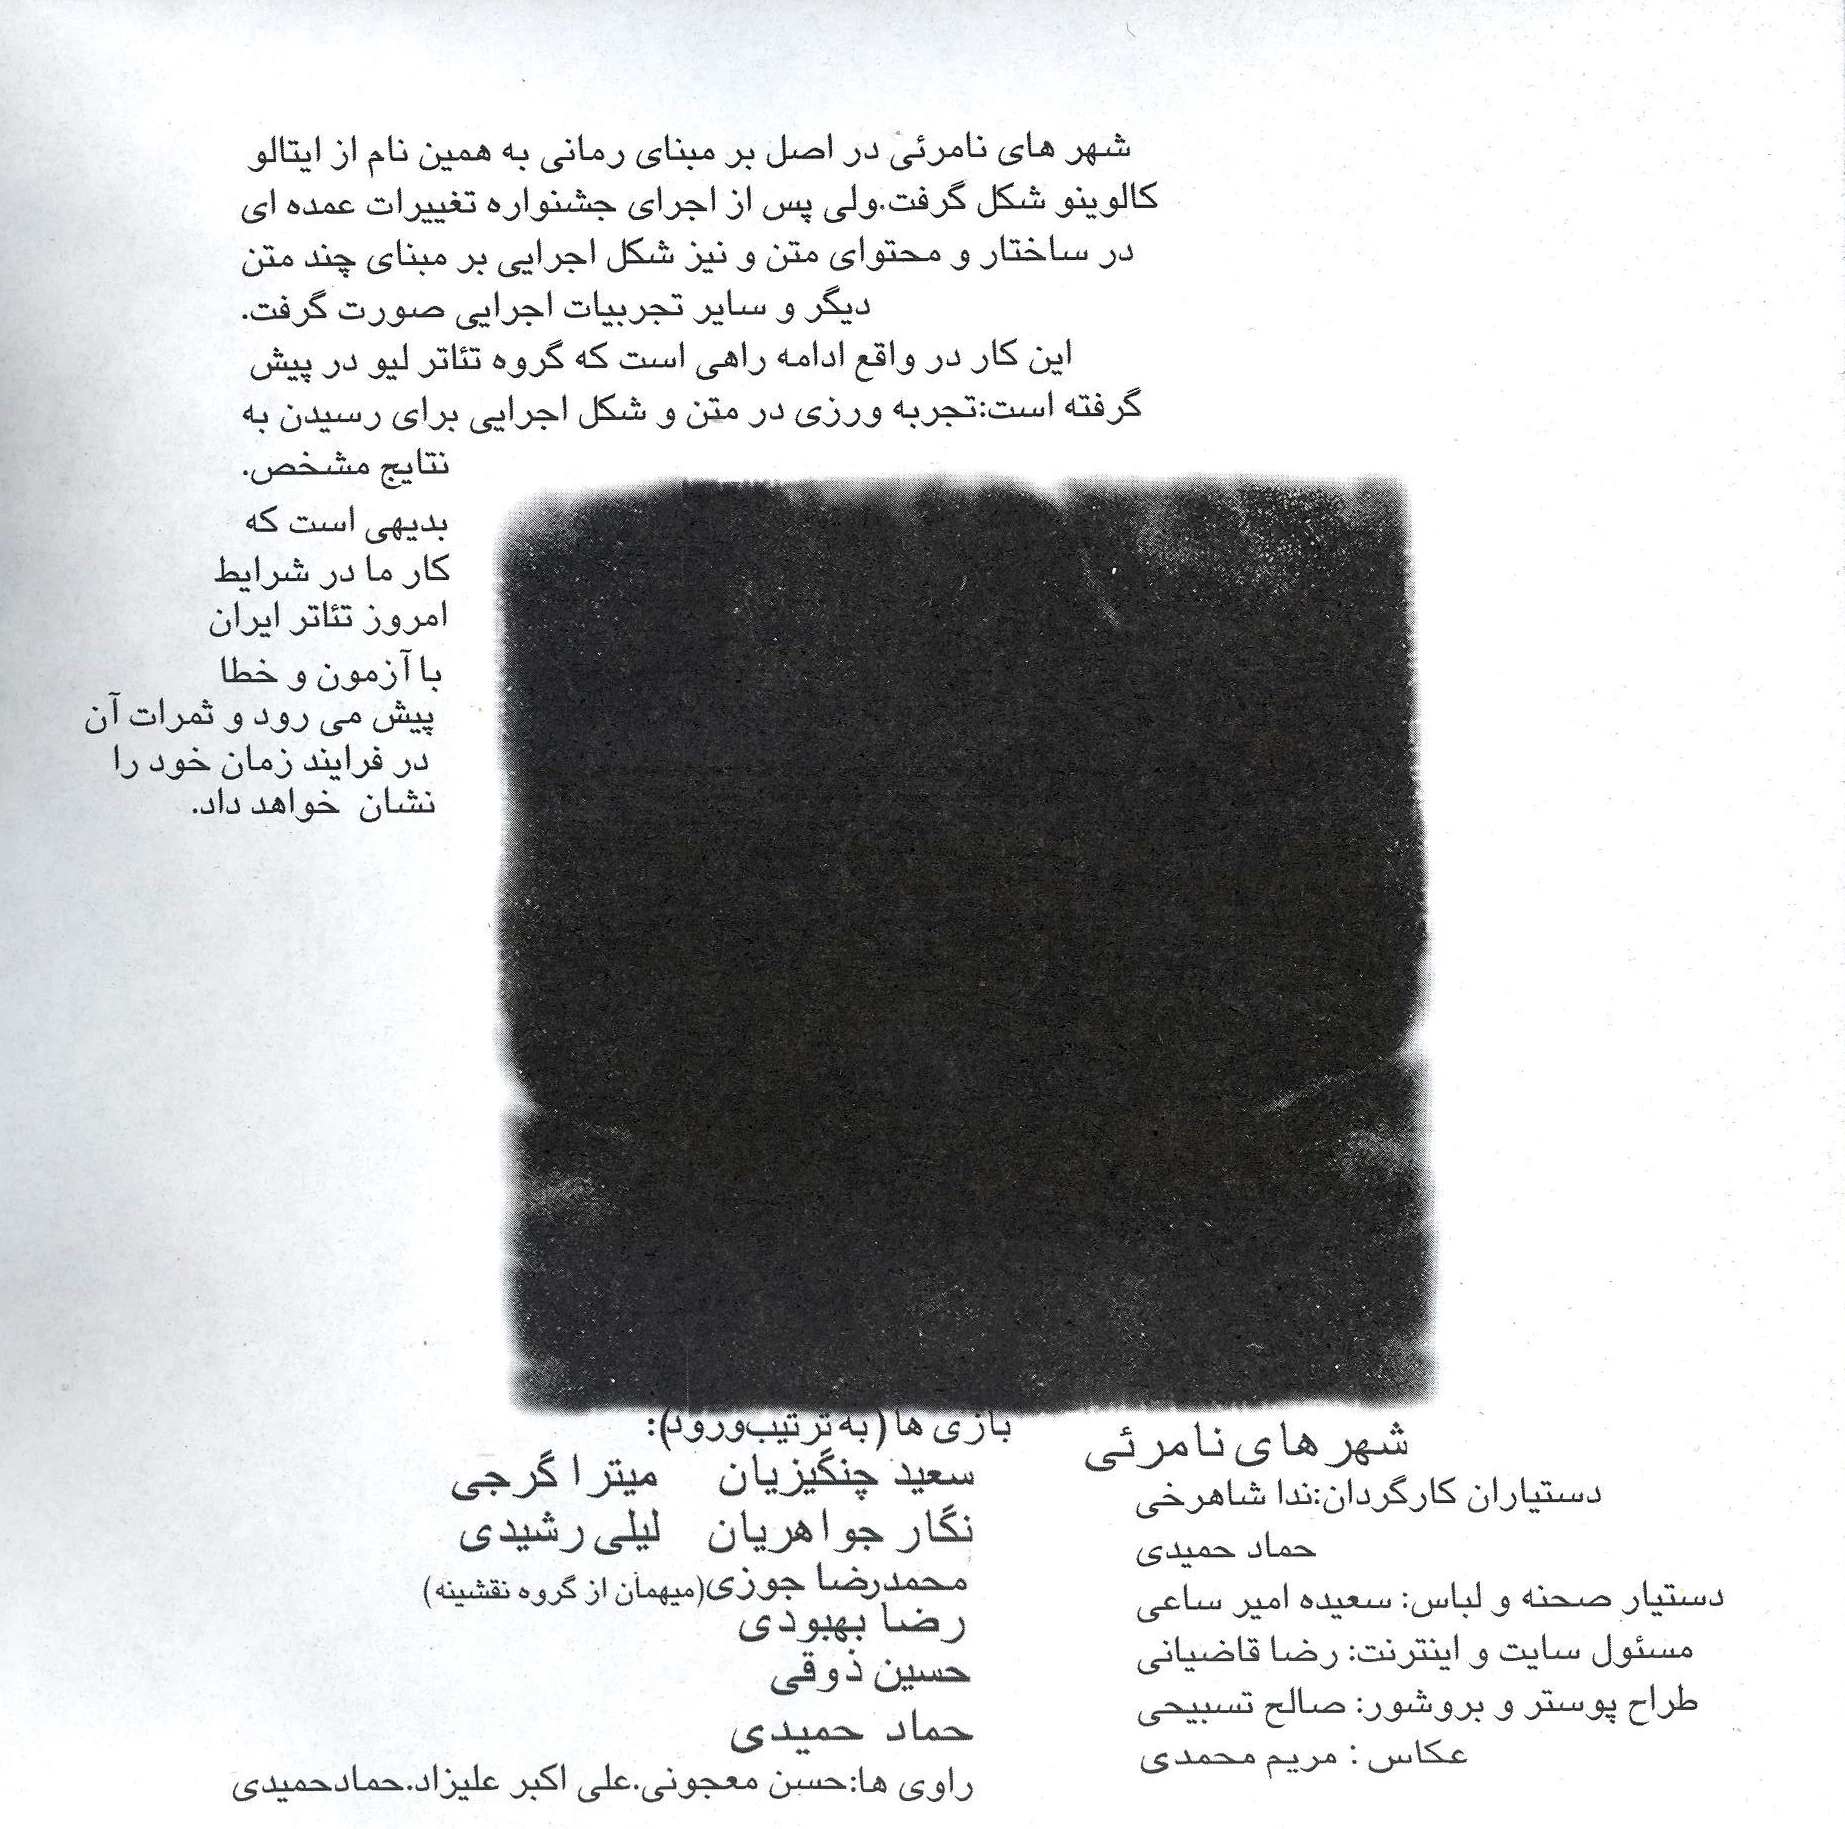 شهر های نامرئی در اصل بر مبنای رمانی به همین نام از ایتالو
کالوینو شکل گرفت.ولی پس از اجرای جشنواره تغییرات عمده ای
در ساختار و محتوای متن و نیز شکل اجرایی بر مبنای چند متن
دیگر و سایر تجربیات اجرایی صورت گرفت.
این کار در واقع ادامه راهی است که گروه تئاتر لیو در پیش
گرفته است:تجربه ورزی در متن و شکل اجرایی برای رسیدن به
نتایج مشخص.
بدیهی است که
کار ما در شرایط
امروز تئاتر ایران
با آزمون و خطا
پیش می رود و ثمرات آن
در فرایند زمان خود را
نشان خواهد داد.
شهر های نامرئی
دستیاران کارگردان:ندا شاهرخی
حماد حمیدی
دستیار صحنه و لباس: سعیده امیر ساعی
مسئول سایت و اینترنت: رضا قاضیانی
طراح پوستر و بروشور: صالح تسبیحی
عکاس : مریم محمدی
بازی ها (به ترتیب‌ورود):
سعید چنگیزیان میترا گرجی
نگار جواهریان لیلی رشیدی
محمدرضا جوزی(میهمان از گروه نقشینه)
رضا بهبودی
حسین ذوقی
حماد حمیدی
راوی ها:حسن معجونی.علی اکبر علیزاد.حمادحمیدی